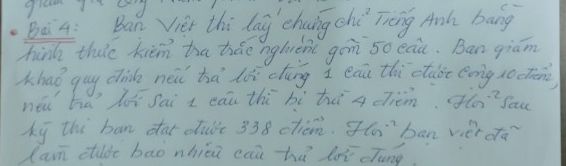 Bài 4: Bạn Việt thi lấy chứng chỉ Tiếng Anh bằng
hình thức kiểm tra trắc nghiệm gồm 50 câu. Ban giám
khảo quy định nếu trả lời đúng 1 câu thì được cộng 10 điểm,
nếu trả lời sai 1 câu thì bị trừ 4 điểm. Hỏi sau
kỳ thi bạn đạt được 338 điểm. Hỏi bạn việt đã
làm được bao nhiêu câu trả lời đúng.